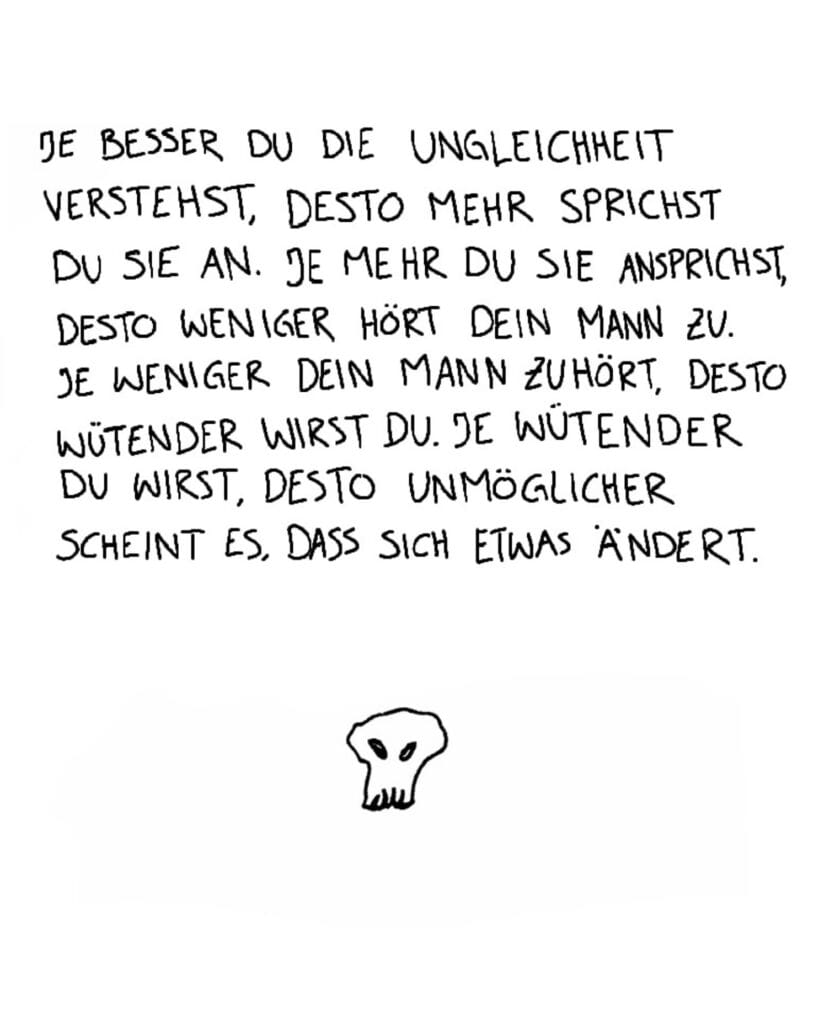 JE BESSER DU DIE UNGLEICHHEIT
VERSTEHST, DESTO MEHR SPRICHST
DU SIE AN. JE MEHR DU SIE ANSPRICHST,
DESTO WENIGER HÖRT DEIN MANN ZU.
JE WENIGER DEIN MANN ZUHÖRT, DESTO
WÜTENDER WIRST DU. JE WÜTENDER
DU WIRST, DESTO UNMÖGLICHER
SCHEINT ES, DASS SICH ETWAS ÄNDERT.